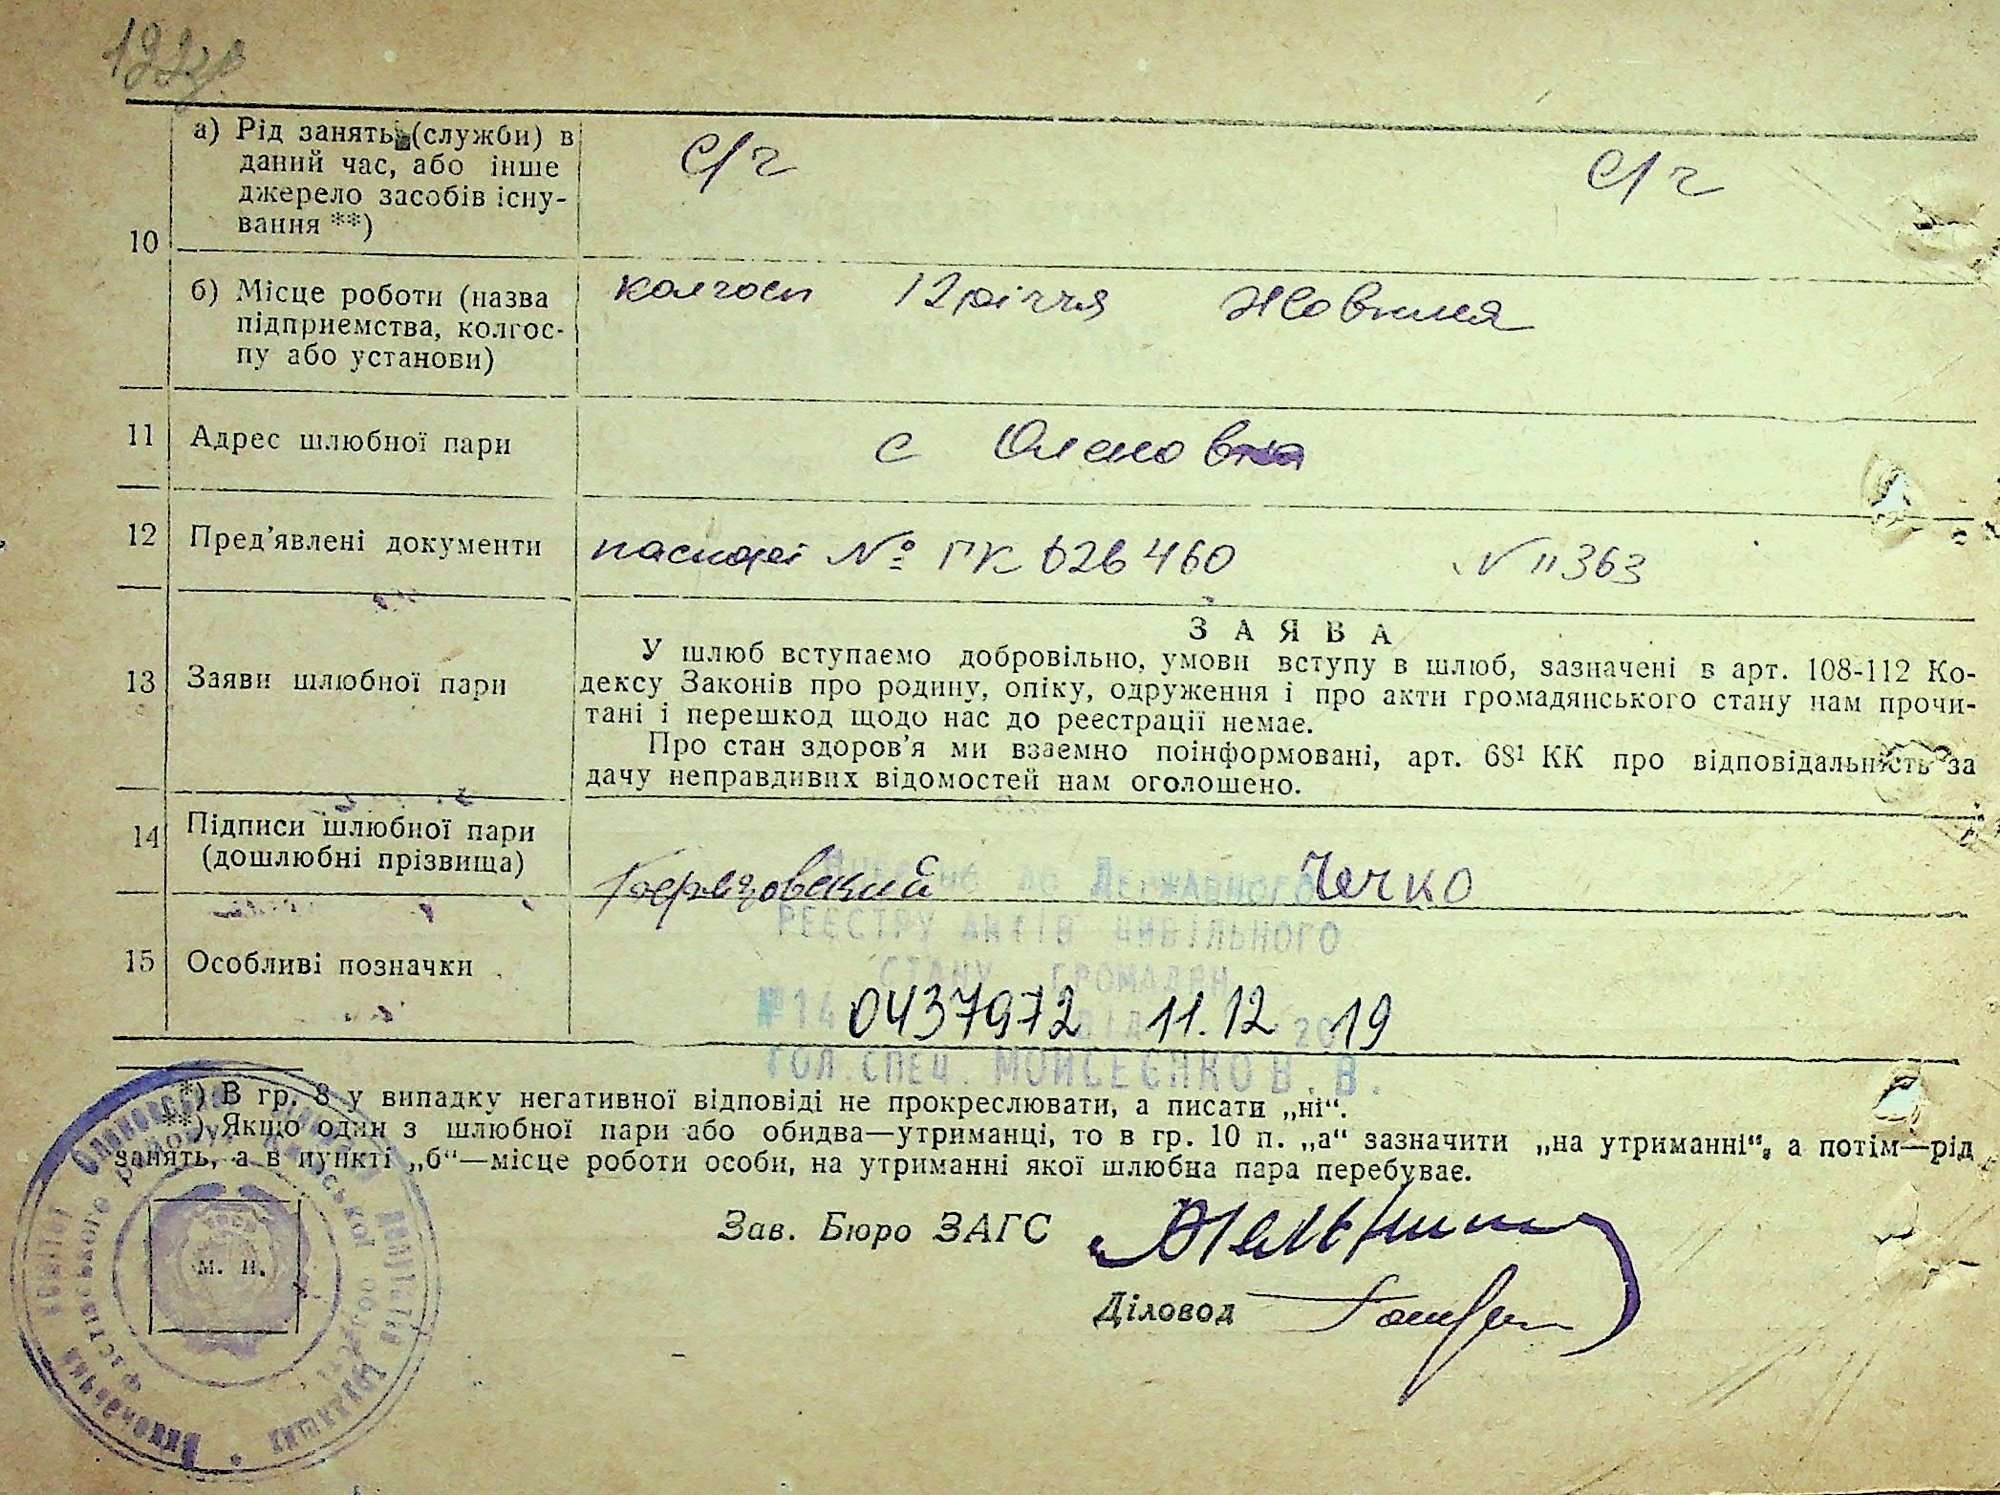 а) Рід занять (служби) в
даний час, або інше
джерело засобів існу-
вання **)
с/г
с/г
10
б) Місце роботи (назва
підприємства, колгос-
пу або установи)
колгосп 12 річчя Жовтня
11
Адрес шлюбної пари
с Оленовка
12
Пред’явлені документи
паспорт № ГК 626460
№ 11363
13
Заяви шлюбної пари
ЗАЯВА
У шлюб вступаємо добровільно, умови вступу в шлюб, зазначені в арт. 108-112 Ко-
дексу Законів про родину, опіку, одруження і про акти громадянського стану нам прочи-
тані і перешкод щодо нас до реєстрації немає.
Про стан здоров’я ми взаємно поінформовані, арт. 68¹ КК про відповідальність за
дачу неправдивих відомостей нам оголошено.
14
Підписи шлюбної пари
(дошлюбні прізвища)
Чечко
ДО ДЕРЖАВНОГО
РЕЄСТРУ АКТІВ ЦИВІЛЬНОГО
СТАНУ ГРОМАДЯН
15
Особливі позначки
№14 0437972 ВІД 11.12 2019
ГОЛ.СПЕЦ. МОЙСЕЄНКО В.В.
*) В гр. 8 у випадку негативної відповіді не прокреслювати, а писати „ні“.
**) Якщо один з шлюбної пари або обидва—утриманці, то в гр. 10 п. „а“ зазначити „на утриманні“, а потім—рід
занять, а в пункті „б“—місце роботи особи, на утриманні якої шлюбна пара перебуває.
М. П.
Зав. Бюро ЗАГС
Діловод